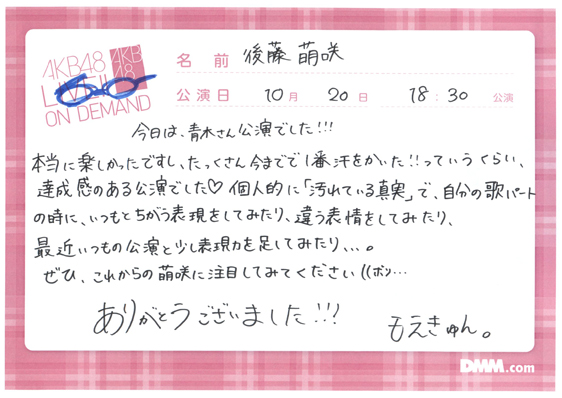 AKB48
LIVE!!
ON DEMAND
AKB
48
名前 後藤 萌咲
公演日 10月 20日 18:30 公演
今日は、青木さん公演でした!!!
本当に楽しかったですし、たっくさん今までで1番汗をかいた!!っていうくらい、
達成感のある公演でした♡ 個人的に「汚れている真実」で、自分の歌パート
の時に、いつもとちがう表現をしてみたり、違う表情をしてみたり、
最近いつもの公演と少し表現力を足してみたり、、、。
ぜひ、これからの萌咲に注目してみてください((ボソ…
ありがとうございました!!!
もえきゅん。
DMM.com